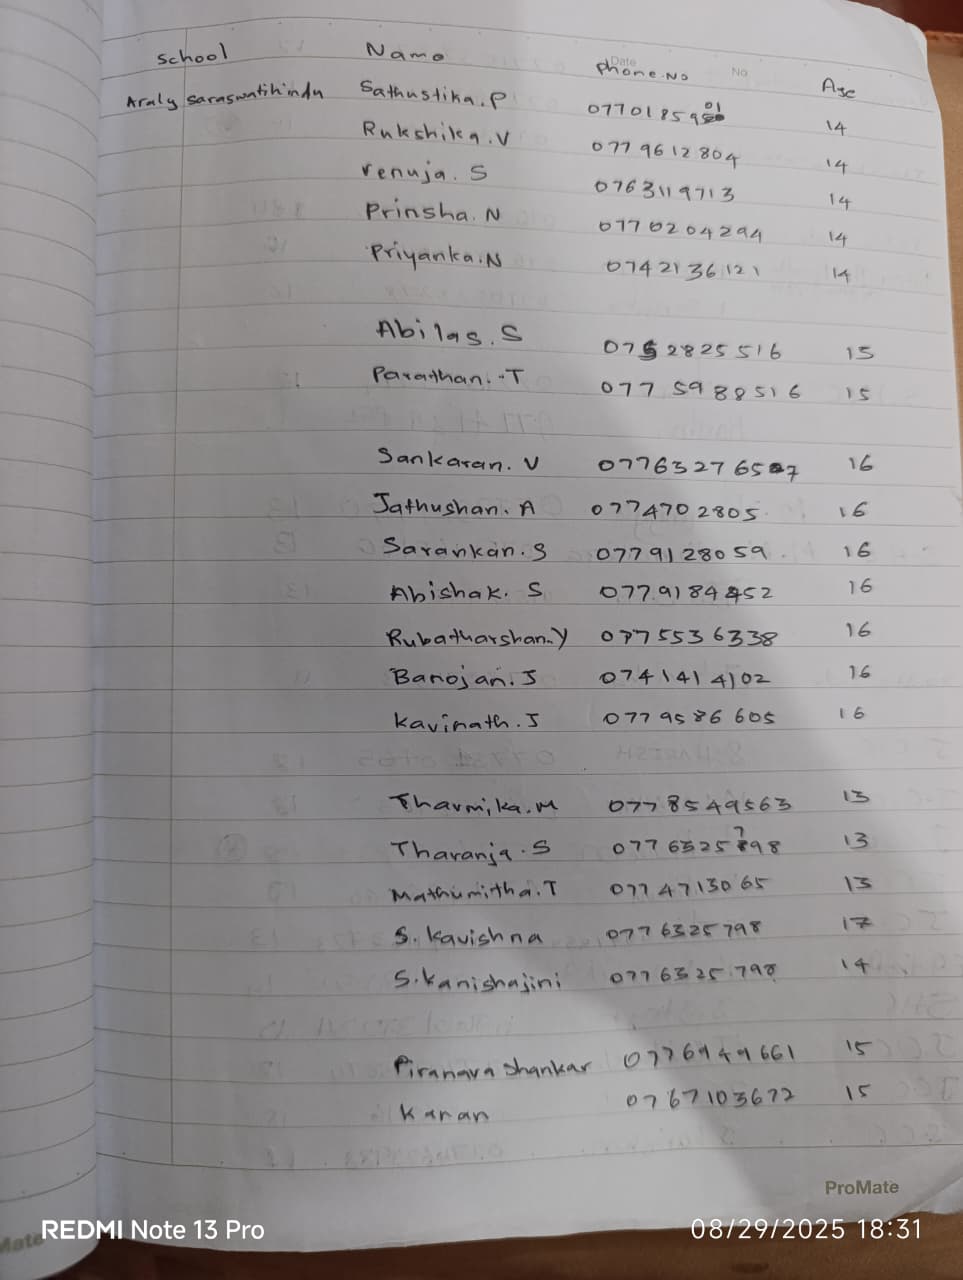 School Name Phone.No Age
Date No
Araly saraswatihindu Sathustika.P 0770185901 14
Rukshika.V 0779612804 14
renuja.S 0763119713 14
Prinsha.N 0770204294 14
Priyanka.N 0742136121 14
Abilas.S 0752825516 15
Parathan.T 0775988516 15
Sankaran.V 0776327657 16
Jathushan.A 0774702805 16
Sarankan.S 0779128059 16
Abishak.S 0779184452 16
Rubatharshan.Y 0775536338 16
Banojan.J 0741414102 16
Kavinath.J 0779586605 16
Tharmika.M 0778549563 13
Tharanja.S 0776325798 13
Mathumitha.T 0774713065 13
S.Kavishna 0776325798 17
S.Kanishajini 0776325798 14
Piranava shankar 0776949661 15
Karan 0767103672 15
ProMate
REDMI Note 13 Pro 08/29/2025 18:31